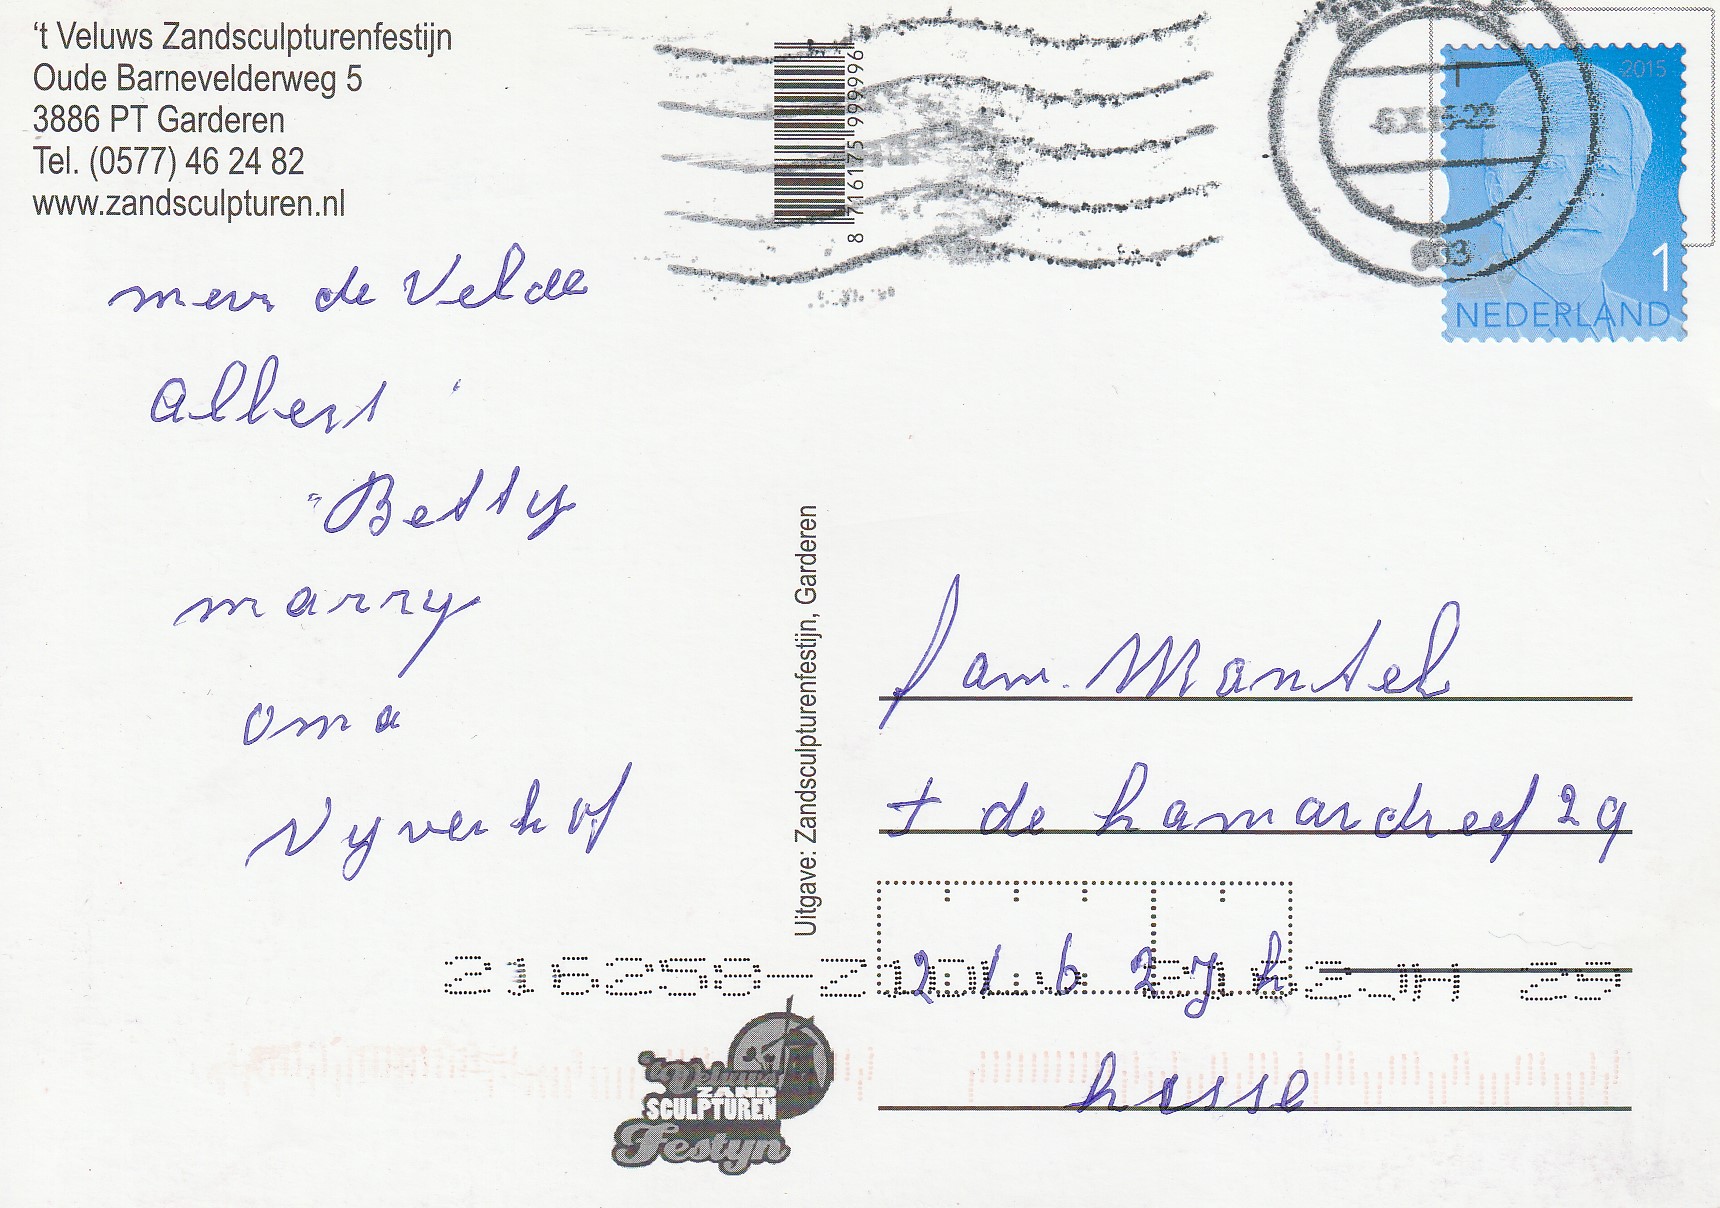 ‘t Veluws Zandsculpturenfestijn
Oude Barnevelderweg 5
3886 PT Garderen
Tel. (0577) 46 24 82
www.zandsculpturen.nl
8 716175 999996
2015
1
NEDERLAND
mevr de Velde
Albert
Betty
marry
oma
Vyverhof
Uitgave: Zandsculpturenfestijn, Garderen
fam. Mantel
t de hamardreef 29
2162 Jh
2JH 29
216258-Z
Lisse
't Veluws
ZAND
SCULPTUREN
Festyn